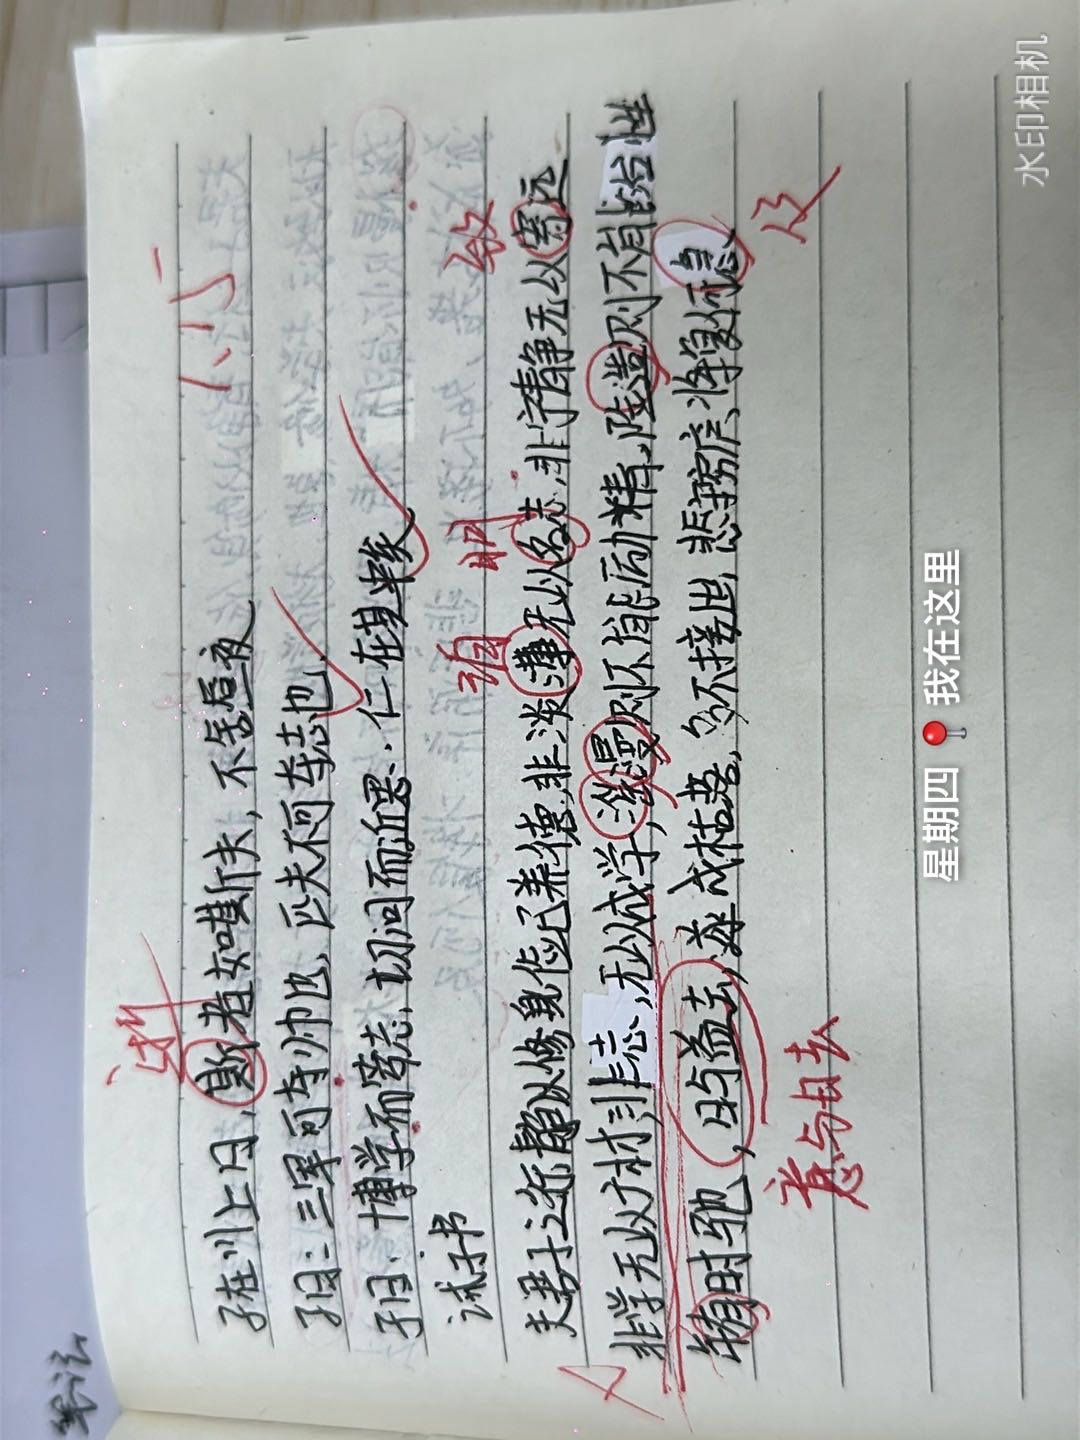 笔记
不巧
逝
子在川上曰、斯者如唯斯夫，不舍昼夜
子曰：三军可夺帅也、匹夫不可夺志也
子曰、博学而笃志、切问而近思、仁在其中矣
诫子书
班 明 致
夫君子之行静以修身俭已养德、非淡薄无以名志、非宁静无以寄远
非学无以广材、非志、无以成学，淮慢则不能励精、险造则不能冶性
年有时驰，日与益去，遂成枯落，多不接世、悲守穷庐、将复何急
意与日去
及
水印相机
星期四📍我在这里